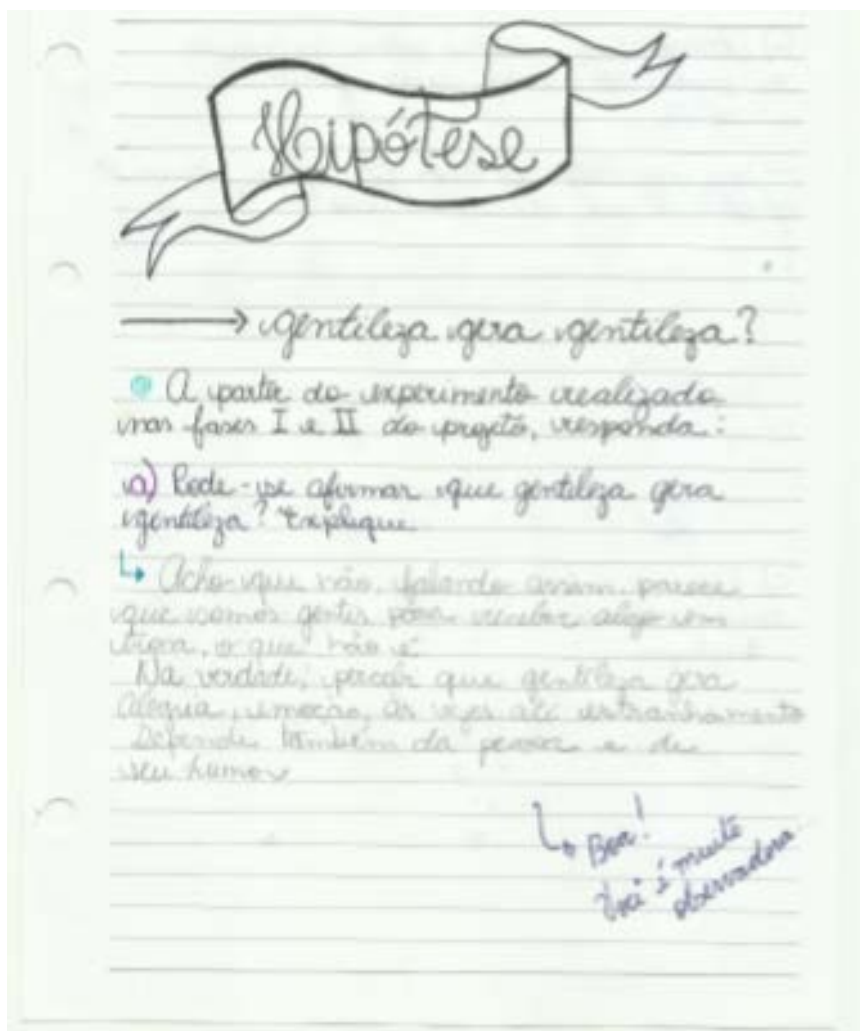 Hipótese
gentileza gera gentileza?
A partir do experimento realizado
nas fases I e II do projeto, responda:
a) Pode-se afirmar que gentileza gera
gentileza? Explique
Acho que não, falando assim, parece
que somos gentis para receber algo em
troca, o que não é
Na verdade, percebi que gentileza gera
alegria, emoção, às vezes até estranhamento
Depende também da pessoa e de
seu humor
Boa!
Você é muito
observadora